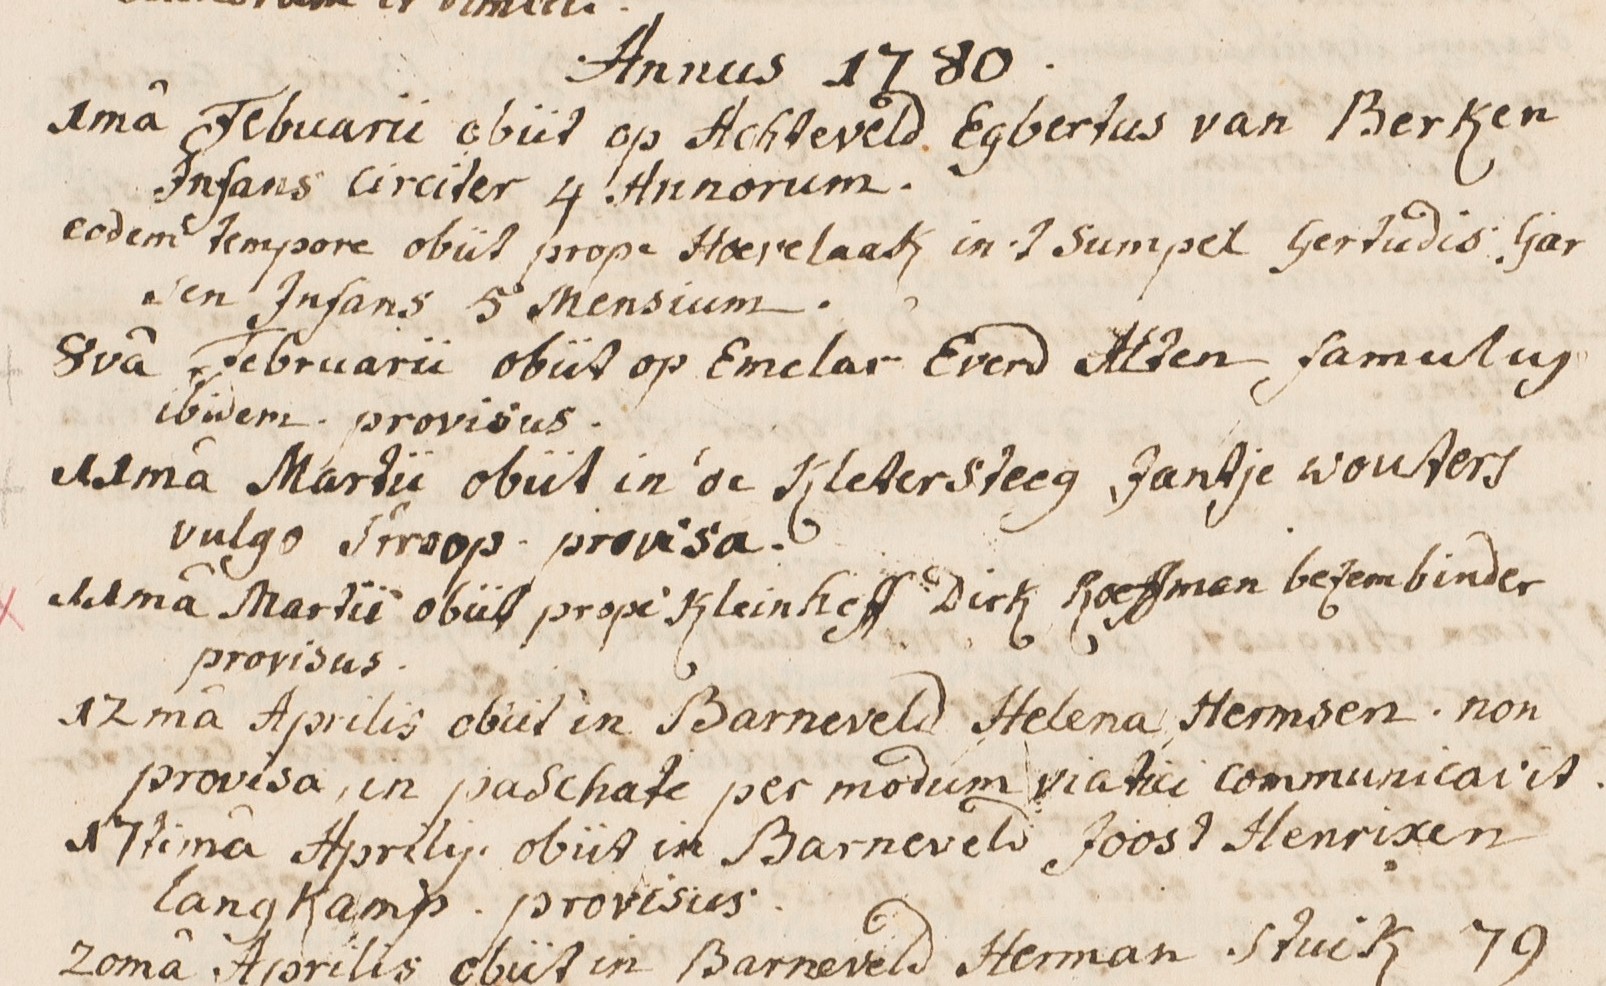 Annus 1780.
1mâ Febuarii obiit op Achteveld Egbertus van Berken
Infans circiter 4 Annorum.
eodem tempore obiit prope Hoevelaak in 't Sumpel Gertudis Gar
sen Infans 5 Mensium.
8vâ Februarii obiit op Emelar Everd Alten famulus
ibidem. provisus.
11mâ Martii obiit in de Kletersteeg Jantje wouters
vulgo Stroop. provisa.
11mâ Martii obiit prope Kleinhoff Dirk Hoffman bezembinder
provisus.
12mâ Aprilis obiit in Barneveld Helena Hermsen. non
provisa, in paschate per modum viatici communicavit.
17timâ Aprilis obiit in Barneveld Joost Henrixen
langKamp. provisus.
20mâ Aprilis obiit in Barneveld Herman Stuik 79